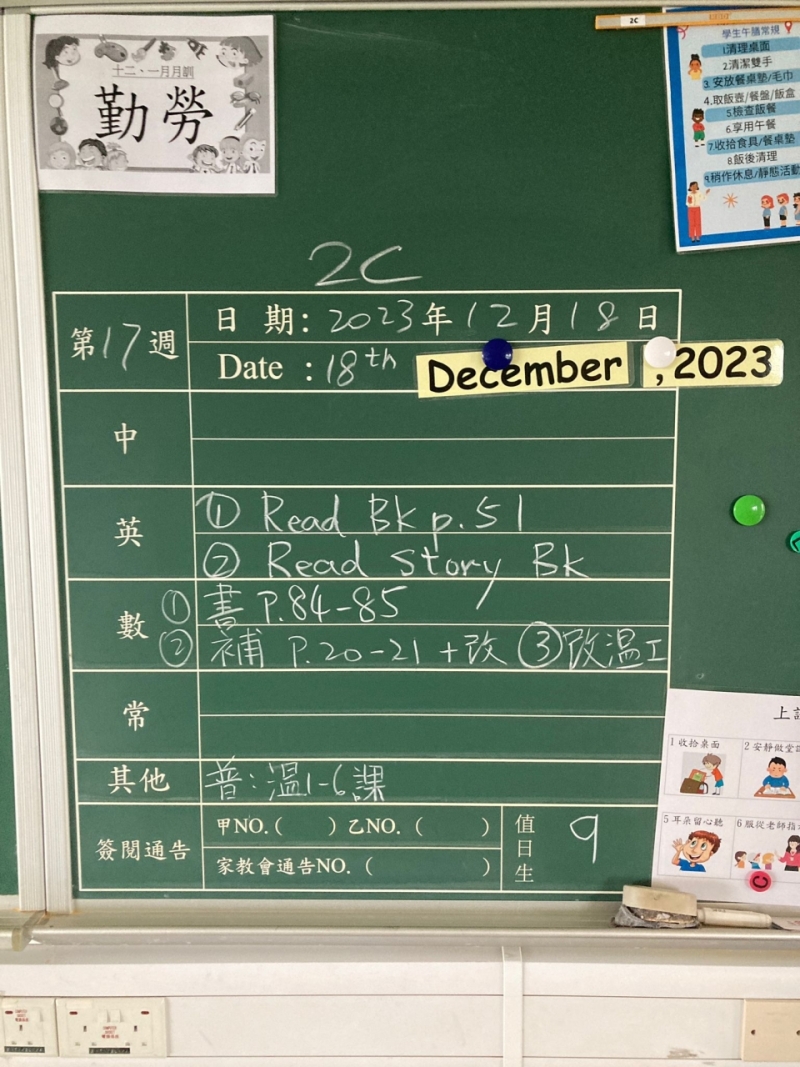 十二、一月月訓
勤勞
2C
學生午膳常規
1清理桌面
2清潔雙手
3.安放餐桌墊/毛巾
4.取飯壺/餐盤/飯盒
5檢查飯餐
6.享用午餐
7.收拾食具/餐桌墊
8飯後清理
9.稍作休息/靜態活動
2C
第17週
日 期：2023年12月18日
Date ：18th December , 2023
中
英
① Read Bk p.51
② Read Story Bk
數
① 書 P.84-85
② 補 P.20-21 +改 ③改溫工
常
其他 普：溫1-6課
簽閱通告
甲NO.（ ）乙NO.（ ）
家教會通告NO.（ ）
值日生 9
1 收拾桌面
2 安靜做堂
5 耳朵留心聽
6 服從老師指
C